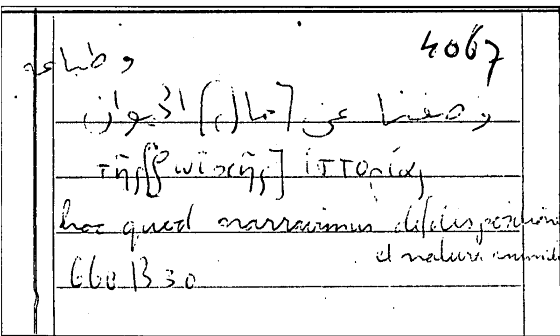 4067
وطباعه
وصفنا عن [حال] الحيوان
τῆς [ζωϊκῆς] ἱστορίας
hoc quod narravimus de dispositione
et natura
660 B 30